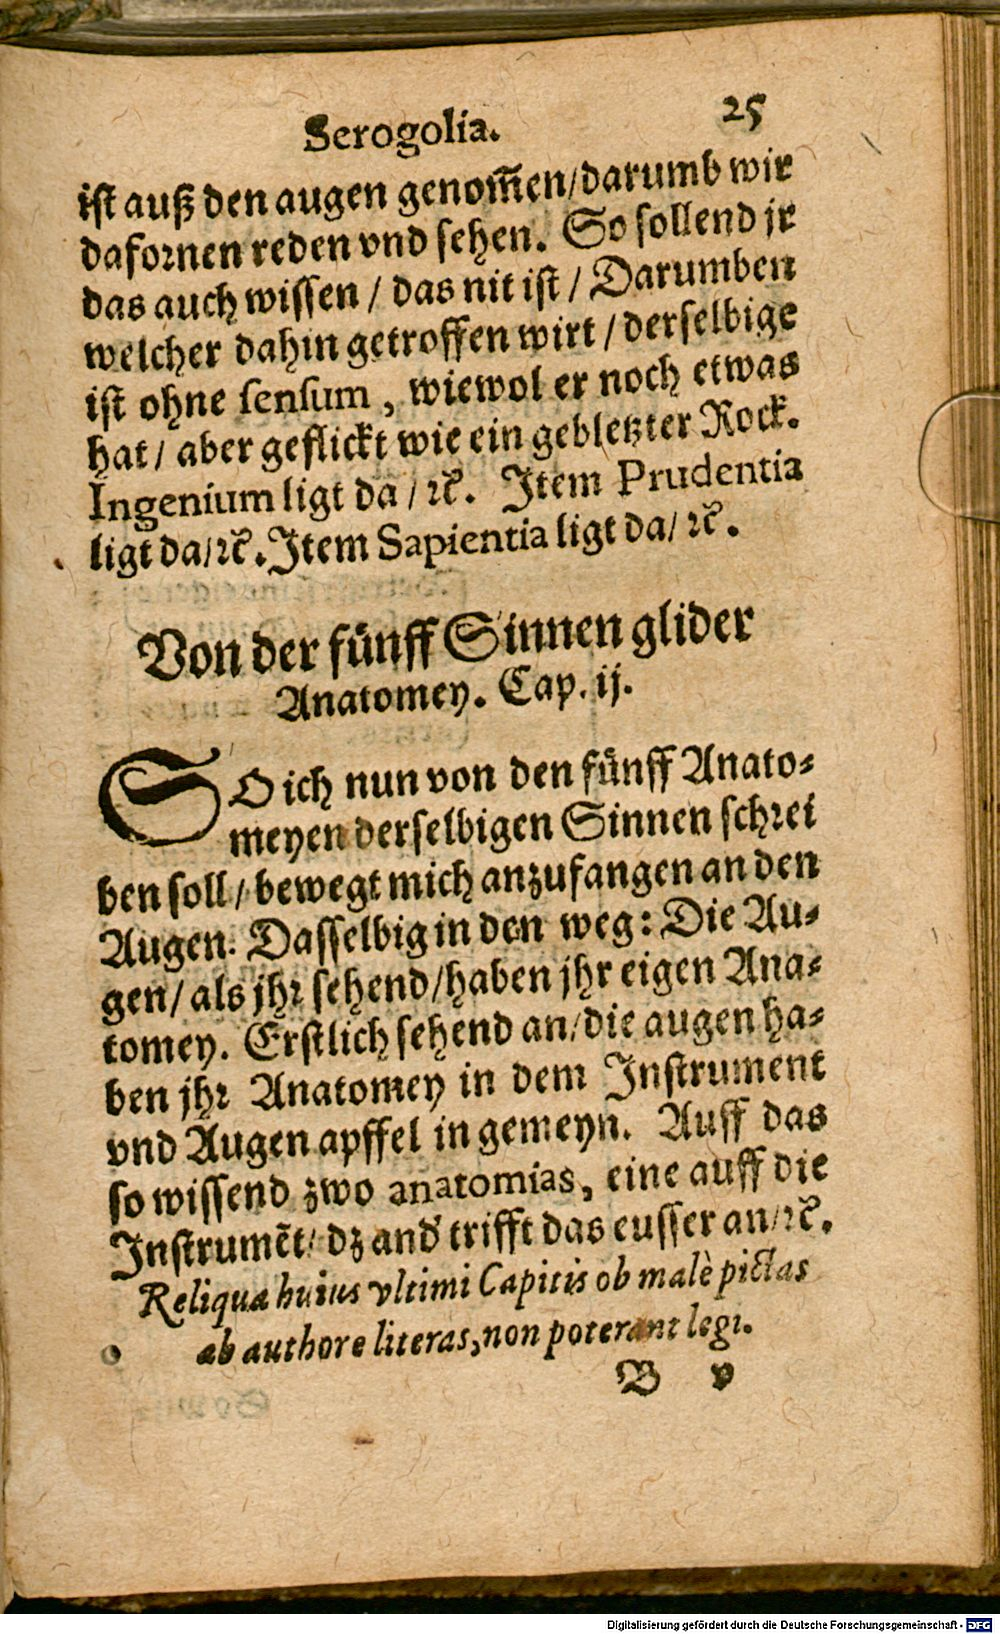 Serogolia. 25
ist auß den augen genom̃en/darumb wir
dafornen reden vnd sehen. So sollend jr
das auch wissen / das nit ist / Darumben
welcher dahin getroffen wirt / derselbige
ist ohne sensum , wiewol er noch etwas
hat / aber geflickt wie ein gebletzter Rock.
Ingenium ligt da / ꝛc̃. Item Prudentia
ligt da/ꝛc̃. Item Sapientia ligt da/ ꝛc̃.
Von der fünff Sinnen glider
Anatomey. Cap. ij.
SO ich nun von den fünff Anato-
meyen derselbigen Sinnen schrei
ben soll / bewegt mich anzufangen an den
Augen. Dasselbig in den weg: Die Au-
gen/ als jhr sehend/haben jhr eigen Ana-
tomey. Erstlich sehend an/die augen ha-
ben jhr Anatomey in dem Instrument
vnd Augen apffel in gemeyn. Auff das
so wissend zwo anatomias, eine auff die
Instrumẽt/ dz and' trifft das eusser an/ꝛc̃.
Reliqua huius vltimi Capitis ob malè pictas
ab authore literas, non poterant legi.
B v
Digitalisierung gefördert durch die Deutsche Forschungsgemeinschaft - DFG